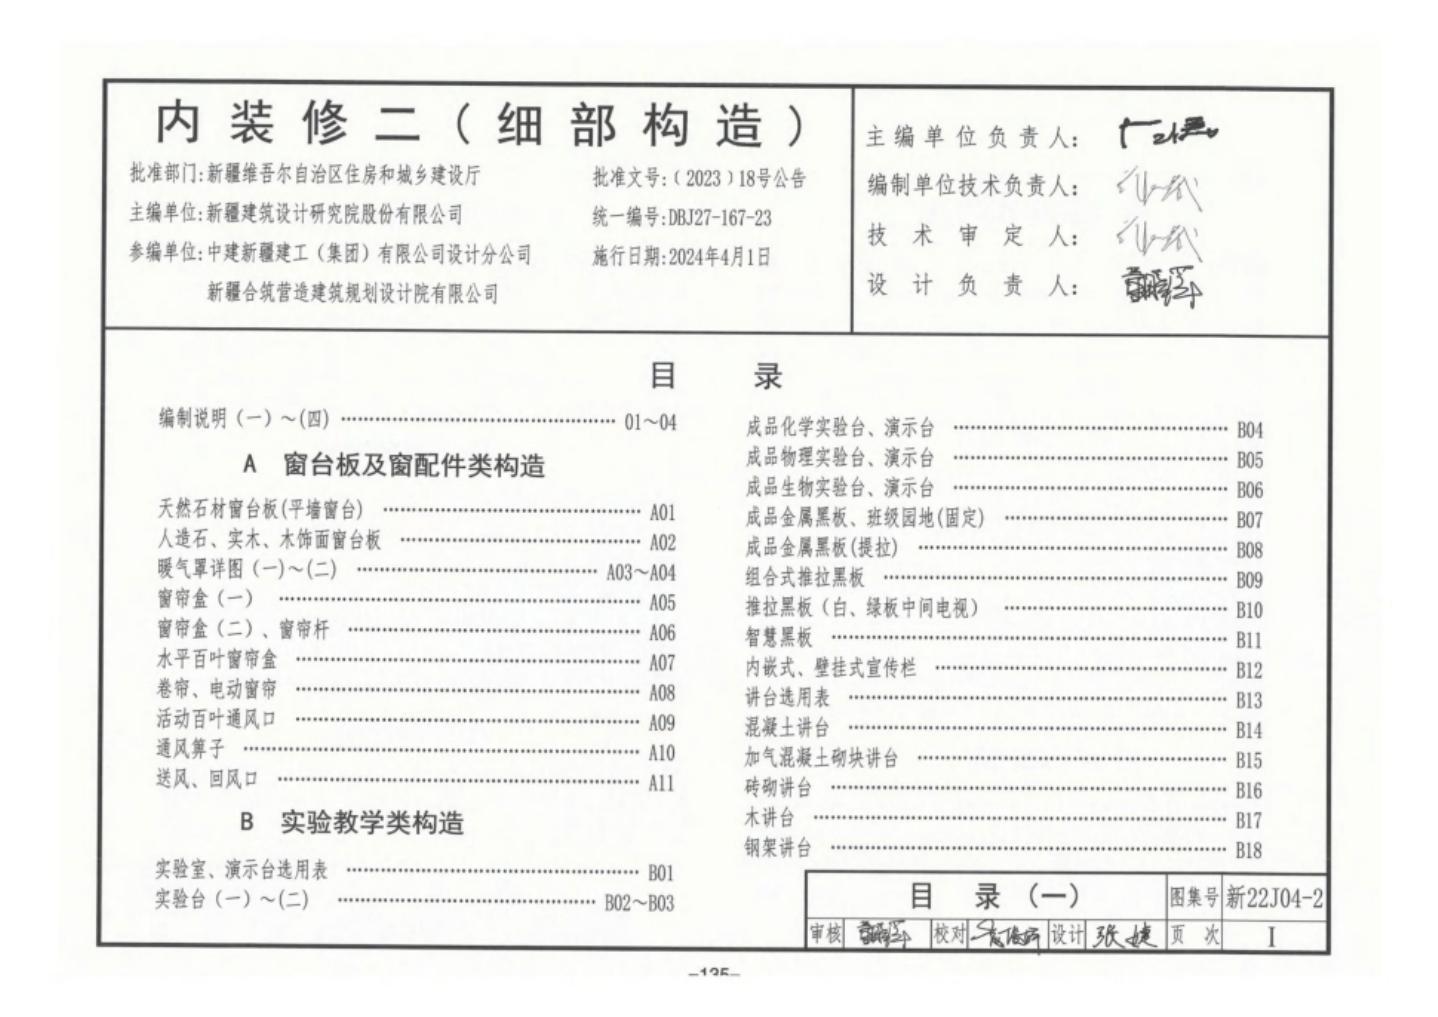 内装修二（细部构造）
批准部门:新疆维吾尔自治区住房和城乡建设厅 批准文号:（2023）18号公告
主编单位:新疆建筑设计研究院股份有限公司 统一编号:DBJ27-167-23
参编单位:中建新疆建工（集团）有限公司设计分公司 施行日期:2024年4月1日
新疆合筑营造建筑规划设计院有限公司
主编单位负责人:
编制单位技术负责人:
技术审定人:
设计负责人:
目 录
编制说明（一）～(四) 01～04
A 窗台板及窗配件类构造
天然石材窗台板(平墙窗台) A01
人造石、实木、木饰面窗台板 A02
暖气罩详图（一)～(二） A03～A04
窗帘盒（一） A05
窗帘盒（二）、窗帘杆 A06
水平百叶窗帘盒 A07
卷帘、电动窗帘 A08
活动百叶通风口 A09
通风箅子 A10
送风、回风口 A11
B 实验教学类构造
实验室、演示台选用表 B01
实验台（一）～(二) B02～B03
成品化学实验台、演示台 B04
成品物理实验台、演示台 B05
成品生物实验台、演示台 B06
成品金属黑板、班级园地(固定) B07
成品金属黑板(提拉) B08
组合式推拉黑板 B09
推拉黑板（白、绿板中间电视） B10
智慧黑板 B11
内嵌式、壁挂式宣传栏 B12
讲台选用表 B13
混凝土讲台 B14
加气混凝土砌块讲台 B15
砖砌讲台 B16
木讲台 B17
钢架讲台 B18
目 录（一） 图集号 新22J04-2
审核 校对 设计 张婕 页次 I
-135-